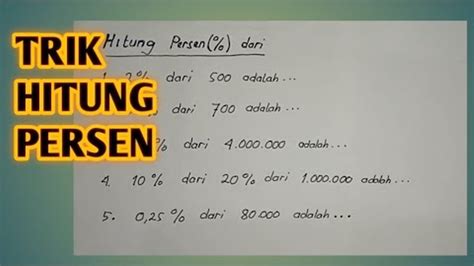 TRIK
HITUNG
PERSEN
Hitung Persen (%) dari
2% dari 500 adalah ...
% dari 700 adalah ...
% dari 4.000.000 adalah ...
4. 10% dari 20% dari 1.000.000 adalah ...
5. 0,25% dari 80.000 adalah ...